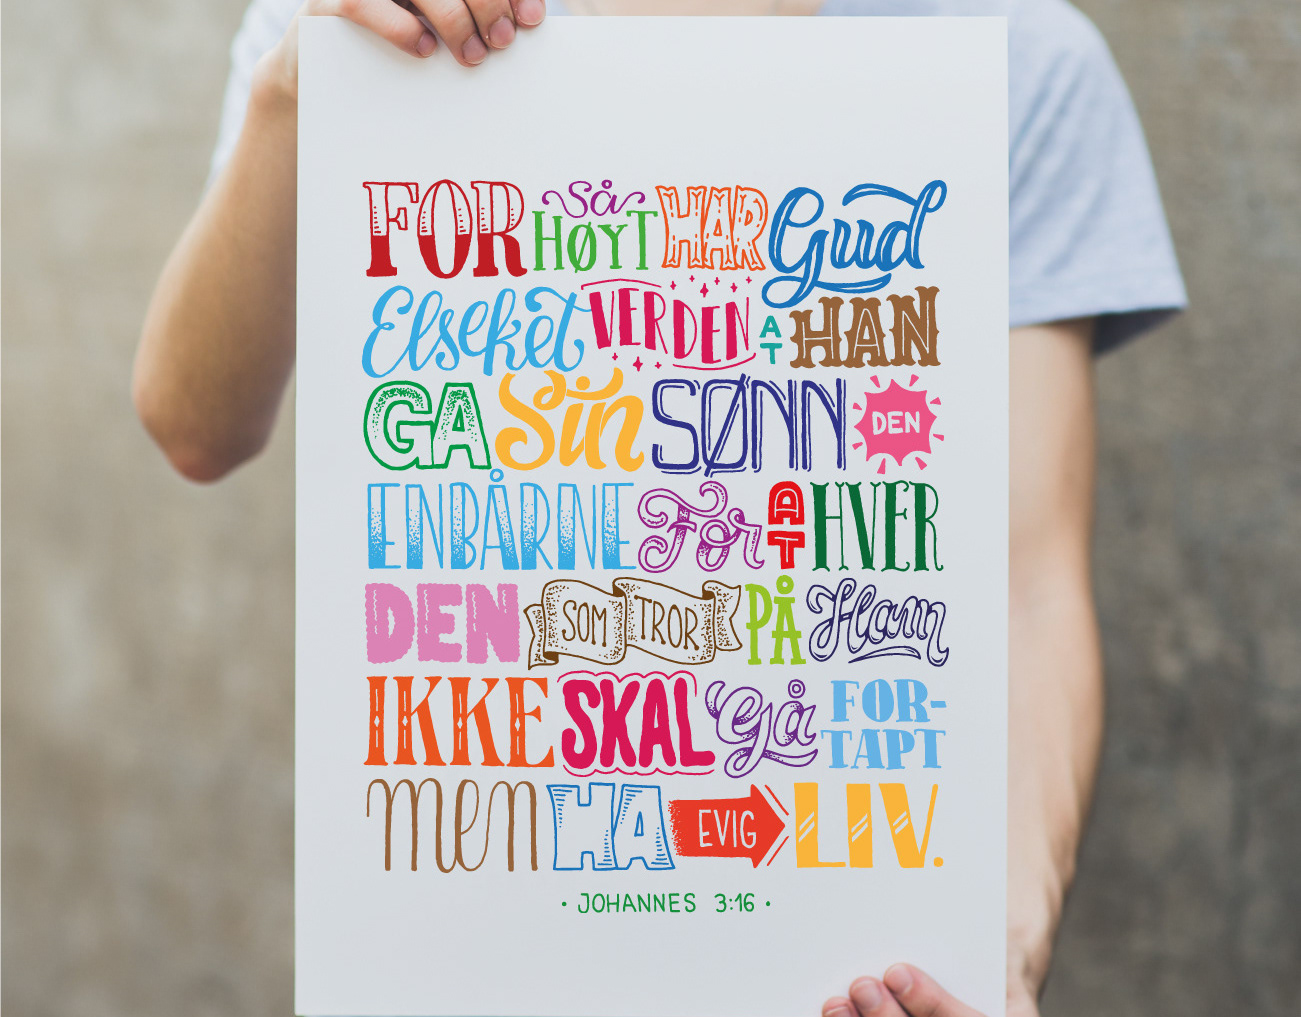 FOR Så HØYT HAR Gud
Elsket VERDEN AT HAN
GA Sin SØNN DEN
ENBÅRNE For AT HVER
DEN SOM TROR PÅ Ham
IKKE SKAL Gå FOR-
TAPT
men HA EVIG LIV.
• JOHANNES 3:16 •